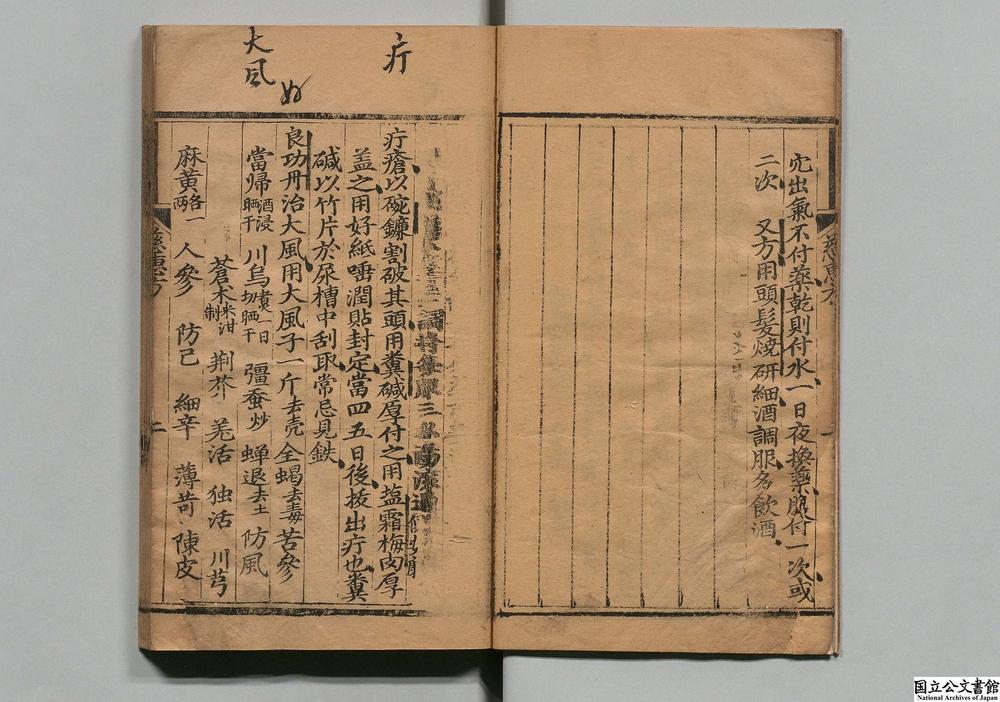 穴出氣不付藥乾則付水一日夜換藥服付一次或
二次 又方用頭髮燒研細酒調服多飲酒
疔
疔瘡以碗鐮割破其頭用糞碱厚付之用塩霜梅肉厚
盖之用好紙唾潤貼封定當四五日後拔出疔也糞
碱以竹片於尿槽中刮取常忌見鉄
大風
良功丹治大風用大風子一斤去壳全蝎去毒苦參
當帰酒浸晒干 川烏煑一日切晒干 彊蚕炒 蝉退去土 防風
蒼术米泔制 荆芥 羌活 独活 川芎
麻黄各一两 人參 防己 細辛 薄苛 陳皮
国立公文書館
National Archives of Japan